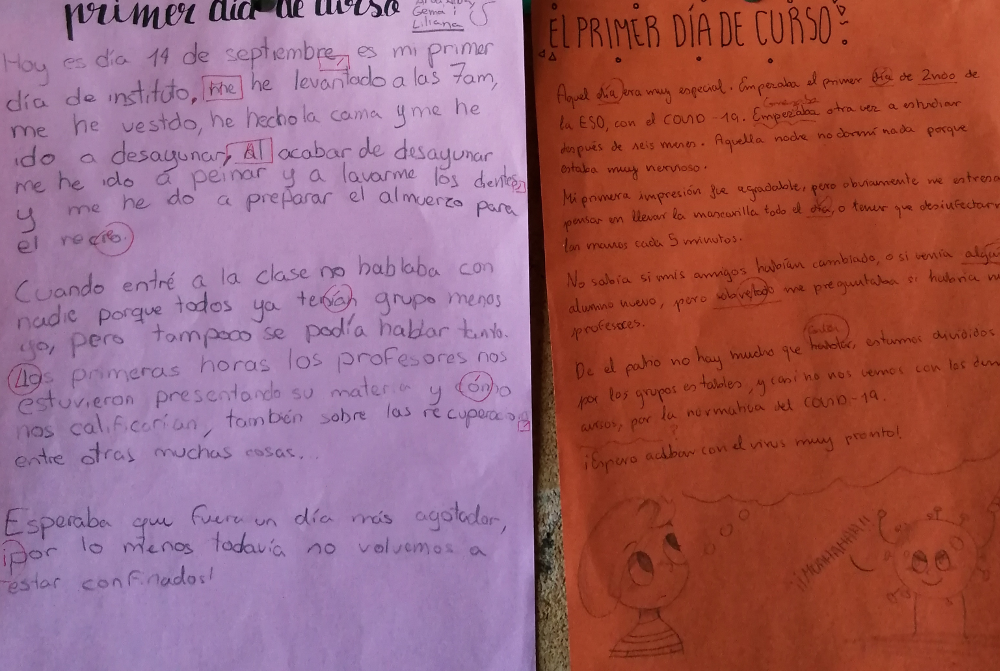 primer día de curso
Gema i
Liliana
Hoy es día 14 de septiembre, es mi primer
día de instituto, me he levantado a las 7am,
me he vestdo, he hecho la cama y me he
ido a desayunar, Al acabar de desayunar
me he ido a peinar y a lavarme los dientes
y me he do a preparar el almuerzo para
el recreo.
Cuando entré a la clase no hablaba con
nadie porque todos ya tenían grupo menos
yo, pero tampoco se podía hablar tanto.
Las primeras horas los profesores nos
estuvieron presentando su materia y cómo
nos calificarían, también sobre las recuperacio
entre otras muchas cosas...
Esperaba que fuera un día más agotador,
¡Por lo menos todavía no volvemos a
estar confinados!
EL PRIMER DÍA DE CURSO
Aquel día era muy especial. Empezaba el primer día de 2noo de
la ESO, con el COVID-19. Empezaba otra vez a estudiar
después de seis meses. Aquella noche no dormí nada porque
estaba muy nervioso.
Mi primera impresión fue agradable, pero obviamente me estresa
pensar en llevar la mascarilla todo el día, o tener que desinfectarn
las manos cada 5 minutos.
No sabía si mis amigos habían cambiado, o si venía algú
alumno nuevo, pero sobretodo me preguntaba si habría
profesores.
De el patio no hay mucho que hablar, estamos divididos
por los grupos estables, y casi no nos vemos con los
cursos, por la normativa del COVID-19.
¡Espero acabar con el virus muy pronto!
¡¡MUAHAHAHA!!